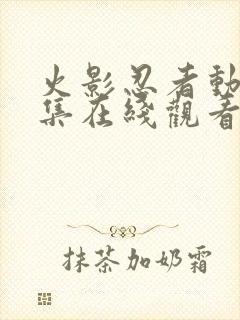 火影忍者動
集在綫觀看
抹茶加奶霜